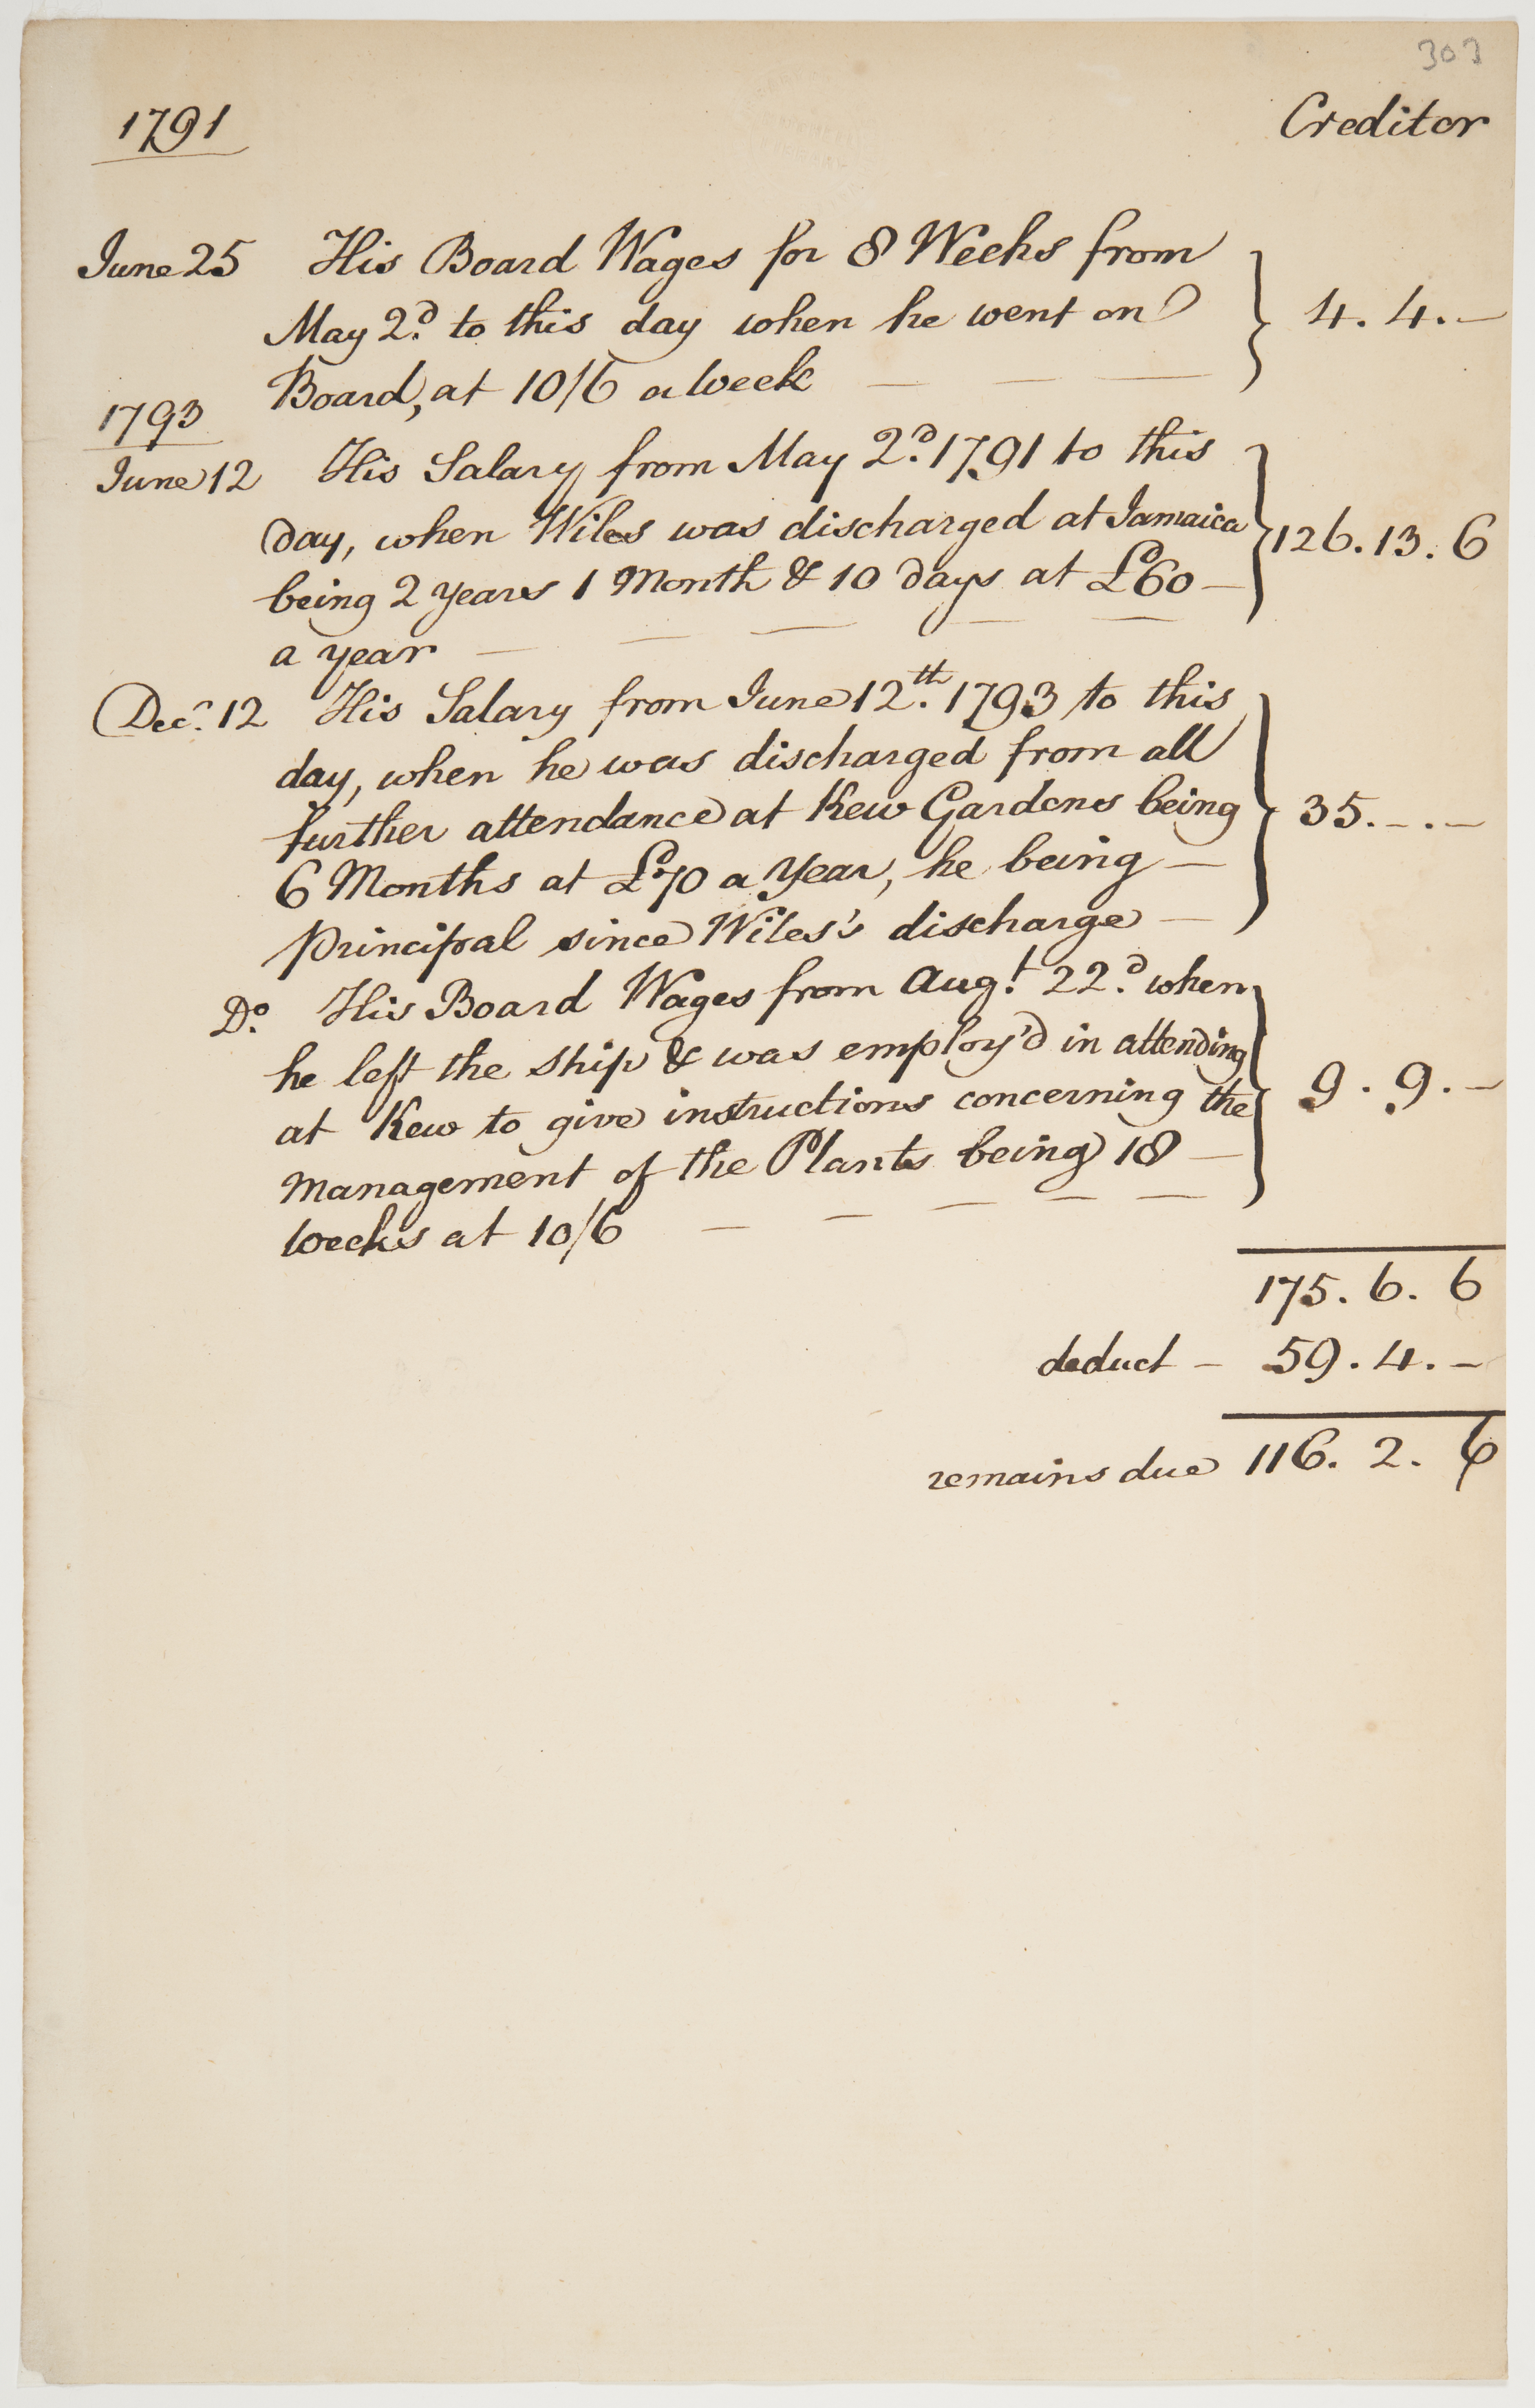 303
1791 Creditor
June 25 His Board Wages for 8 Weeks from
May 2.d to this day when he went on
Board, at 10/6 a Week — — — 4. 4. —
1793
June 12 His Salary from May 2.d 1791 to this
day, when Wiles was discharged at Jamaica 126. 13. 6
being 2 years 1 Month & 10 days at £60 —
a year — — — — —
Dec.r 12 His Salary from June 12.th 1793 to this
day, when he was discharged from all
further attendance at Kew Gardens being 35. —. —
6 Months at £70 a Year, he being —
principal since Wiles's discharge —
D.o His Board Wages from Aug.t 22.d when
he left the ship & was employ'd in attending
at Kew to give instructions concerning the 9. 9. —
Management of the Plants being 18 —
Weeks at 10/6 — — — — —
175. 6. 6
deduct — 59. 4. —
remains due 116. 2. 6